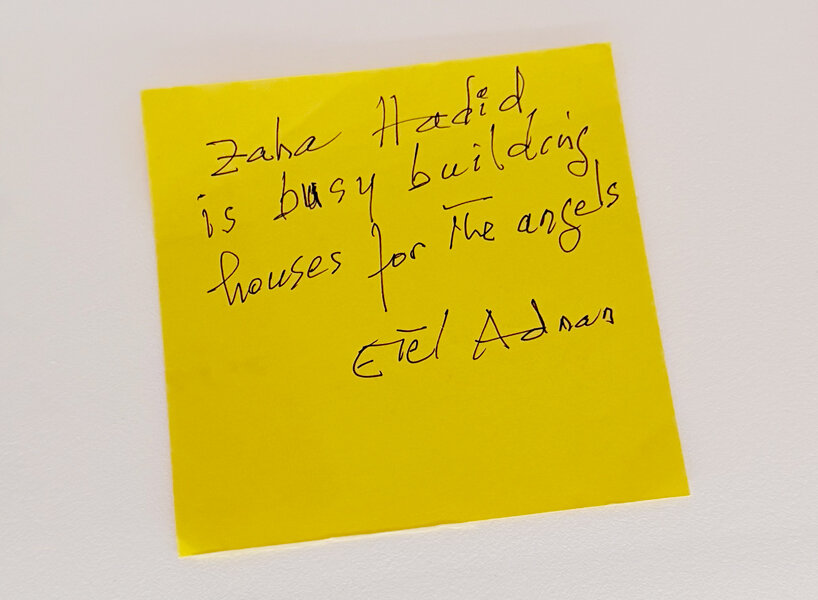 Zaha Hadid,
is busy building
houses for the angels
Etel Adnan